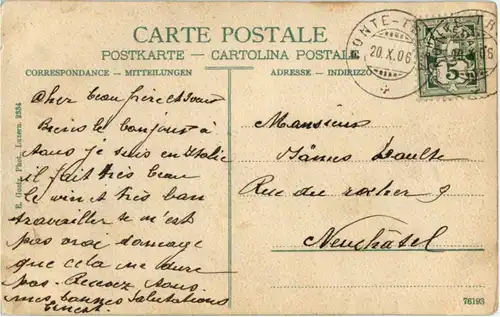 CARTE POSTALE
POSTKARTE - CARTOLINA POSTALE
CORRESPONDANCE - MITTEILUNGEN
ADRESSE - INDIRIZZO
20.X.06
5
Cher beau frère et
Bien le bonjour à
tous je suis en Italie
il fait très beau
le vin et très bon
travailler se n'est
pas vrai domage
que cela ne dure
pas. Recevez tous
mes bonnes salutations
Ernest
Monsieur
Rue du rocher 9
Neuchâtel
E. Goetz, Phot., Luzern. 2334
76193